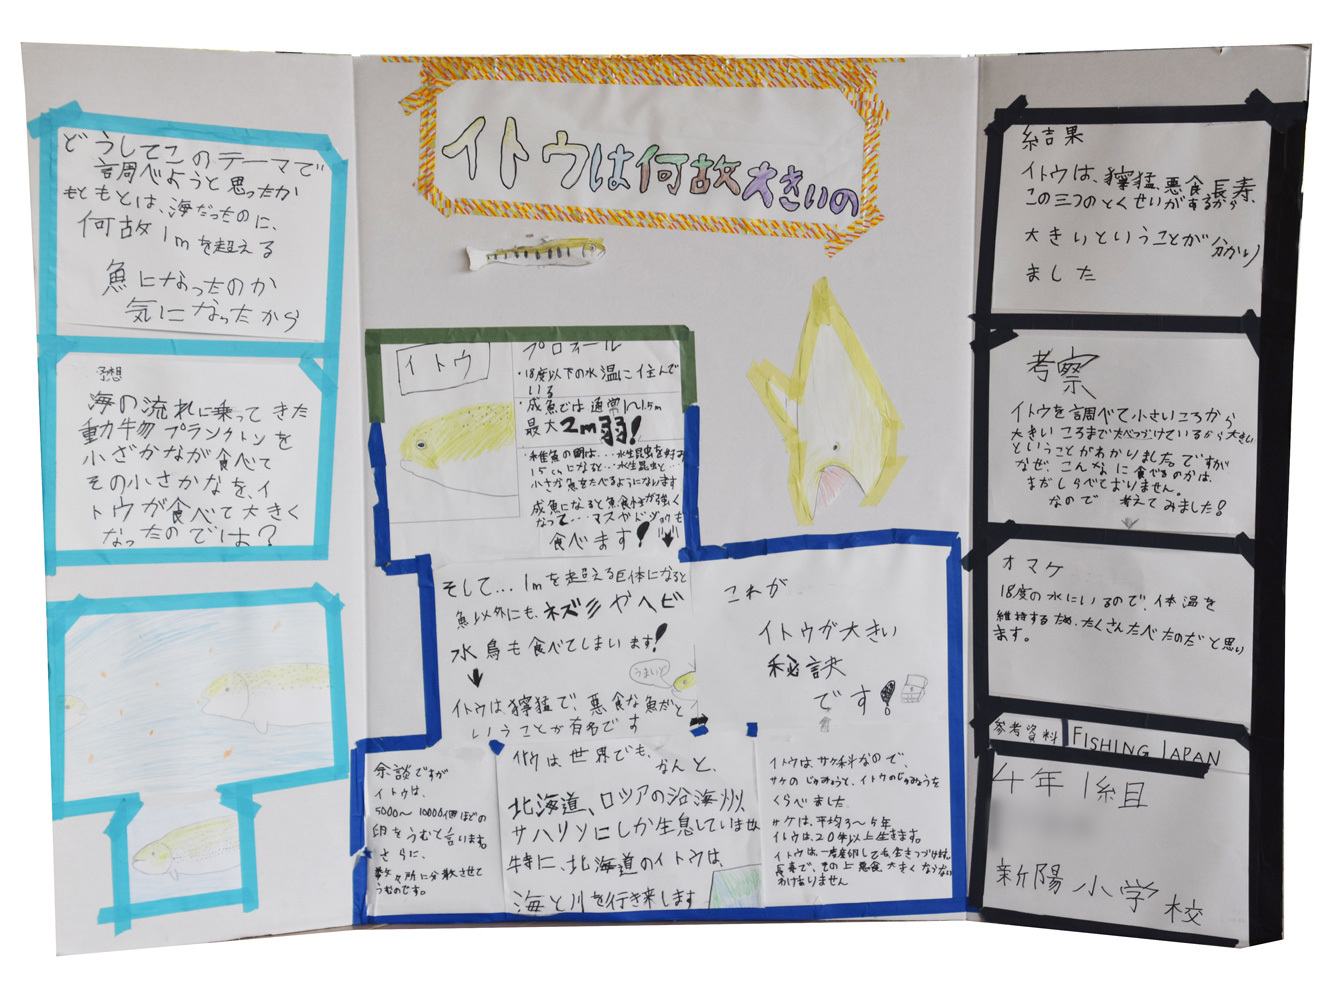 イトウは何故大きいの
どうしてこのテーマで
調べようと思ったか
もともとは、海だったのに、
何故1mを超える
魚になったのか
気になったから
予想
海の流れに乗ってきた
動物プランクトンを
小ざかなが食べて
その小さかなを、イ
トウが食べて大きく
なったのでは?
イトウ
プロフィール
・18度以下の水温に住んで
いる
・成魚では通常1〜1.5m
最大2m弱!
・稚魚の間は...水生昆虫を好み
15cmになると...水生昆虫と...
小さか魚をたべるようになります
成魚になると魚食性が強く
なって...マスやドジョウも
食べます!
そして...1mを超える巨体になると
魚以外にも、ネズミやヘビ
水鳥も食べてしまいます!
うまいと
イトウは獰猛で、悪食な魚だと
いうことが有名です
これが
イトウが大きい
秘訣
です!
余談ですが
イトウは、
5000〜10000個ほどの
卵をうむと言います。
さらに、
数々所に分散させて
うむのです。
イトウは世界でも、
なんと、
北海道、ロシアの沿海州、
サハリンにしか生息していません
特に、北海道のイトウは、
海と川を行き来します
イトウは、サケ科なので、
サケのじゅみょうと、イトウのじゅみょうを
くらべました
サケは、平均3〜5年
イトウは、20年以上生きます。
イトウは、一度産卵しても生きつづけます。
長寿で、その上悪食大きくならない
わけありません
結果
イトウは、獰猛、悪食、長寿、
この三つのとくせいがあるから
大きいということが分かり
ました
考察
イトウを調べて小さいころから
大きいころまでたべつづけているから大きい
ということがわかりました。ですが
なぜ、こんなに食べるのかは、
まだしらべておりません。
なので 考えてみました!
オマケ
18度の水にいるので、体温を
維持するため、たくさんたべたのだと思い
ます。
参考資料 FISHING JAPAN
4年1組
新陽小学校